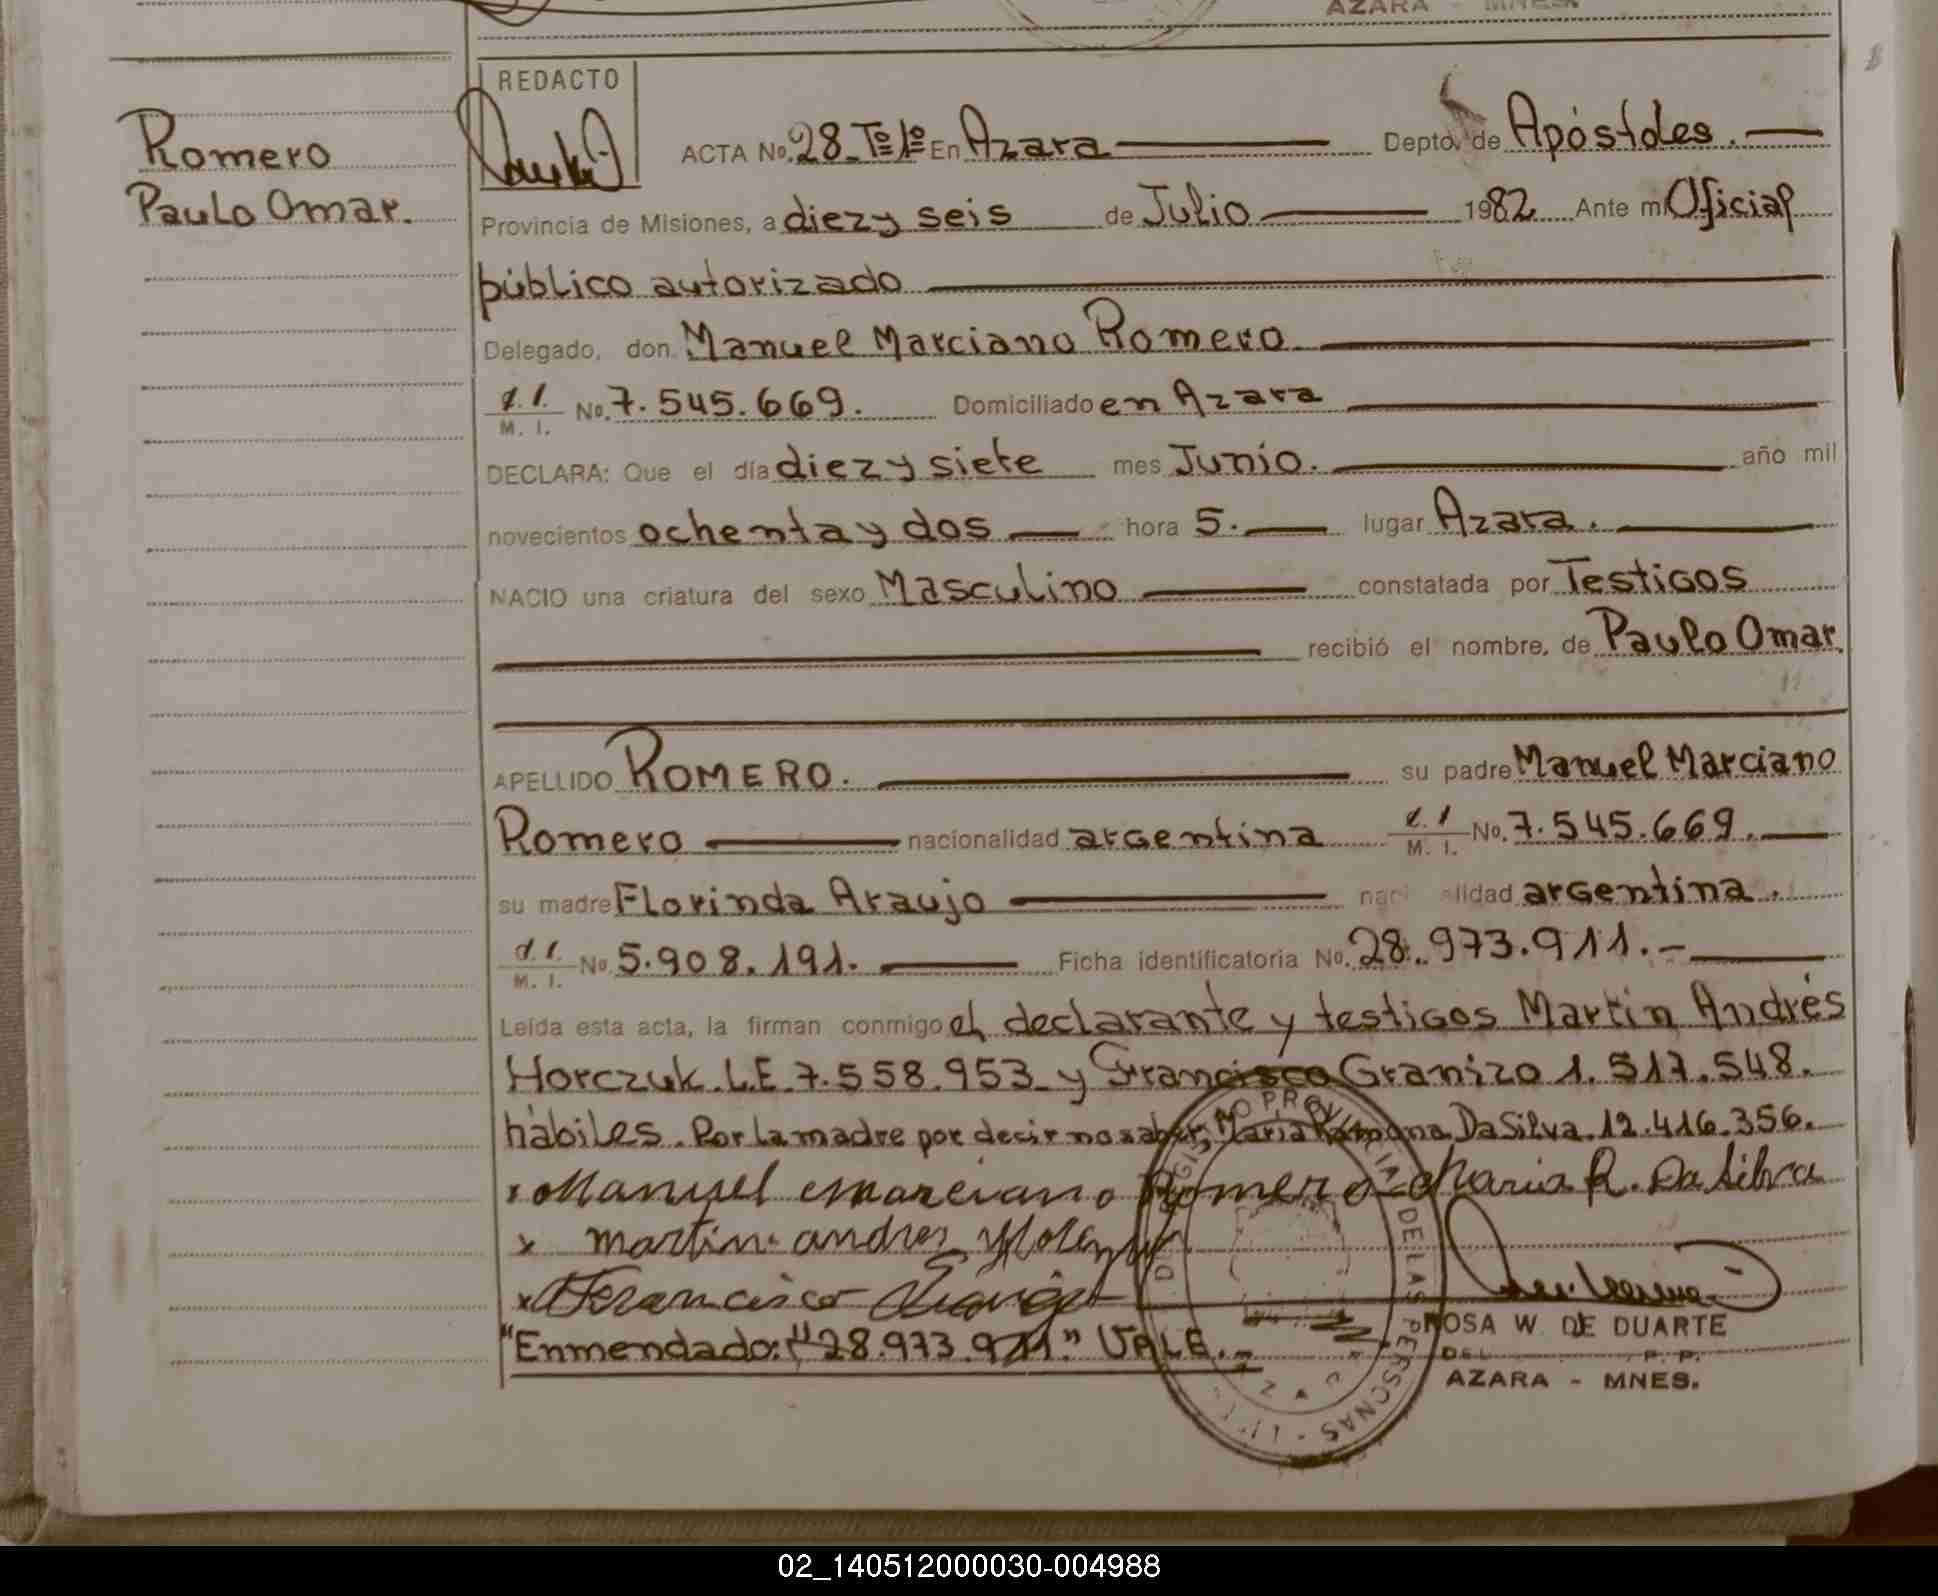 AZARA - MNES.
REDACTO
Romero
Paulo Omar.
ACTA No. 28 Tº 1º En Azara Depto. de Apóstoles.
Provincia de Misiones, a diez y seis de Julio 1982 Ante mi Oficial
público autorizado
Delegado, don Manuel Marciano Romero
M. I. No. 7.545.669. Domiciliado en Azara
DECLARA: Que el día diez y siete mes Junio. año mil
novecientos ochenta y dos hora 5. lugar Azara.
NACIO una criatura del sexo Masculino constatada por Testigos
recibió el nombre, de Paulo Omar.
APELLIDO ROMERO. su padre Manuel Marciano
Romero nacionalidad argentina M. I. No. 7.545.669.
su madre Florinda Araujo nacionalidad argentina.
d.i. M. I. No. 5.908.191. Ficha identificatoria No. 28.973.911.-
Leída esta acta, la firman conmigo el declarante y testigos Martín Andrés
Horczuk. L.E. 7.558.953 y Francisco Granizo 1.517.548.
hábiles. Por la madre por decir no saber, María Ramona Da Silva. 12.416.356.
x Manuel Marciano Romero - Maria R. Da Silva
x martin andres
x Francisco
"Enmendado: "28.973.911." VALE.-
REGISTRO PROVINCIAL DE LAS PERSONAS
ROSA W. DE DUARTE
DEL. R. P.
AZARA - MNES.
02_140512000030-004988